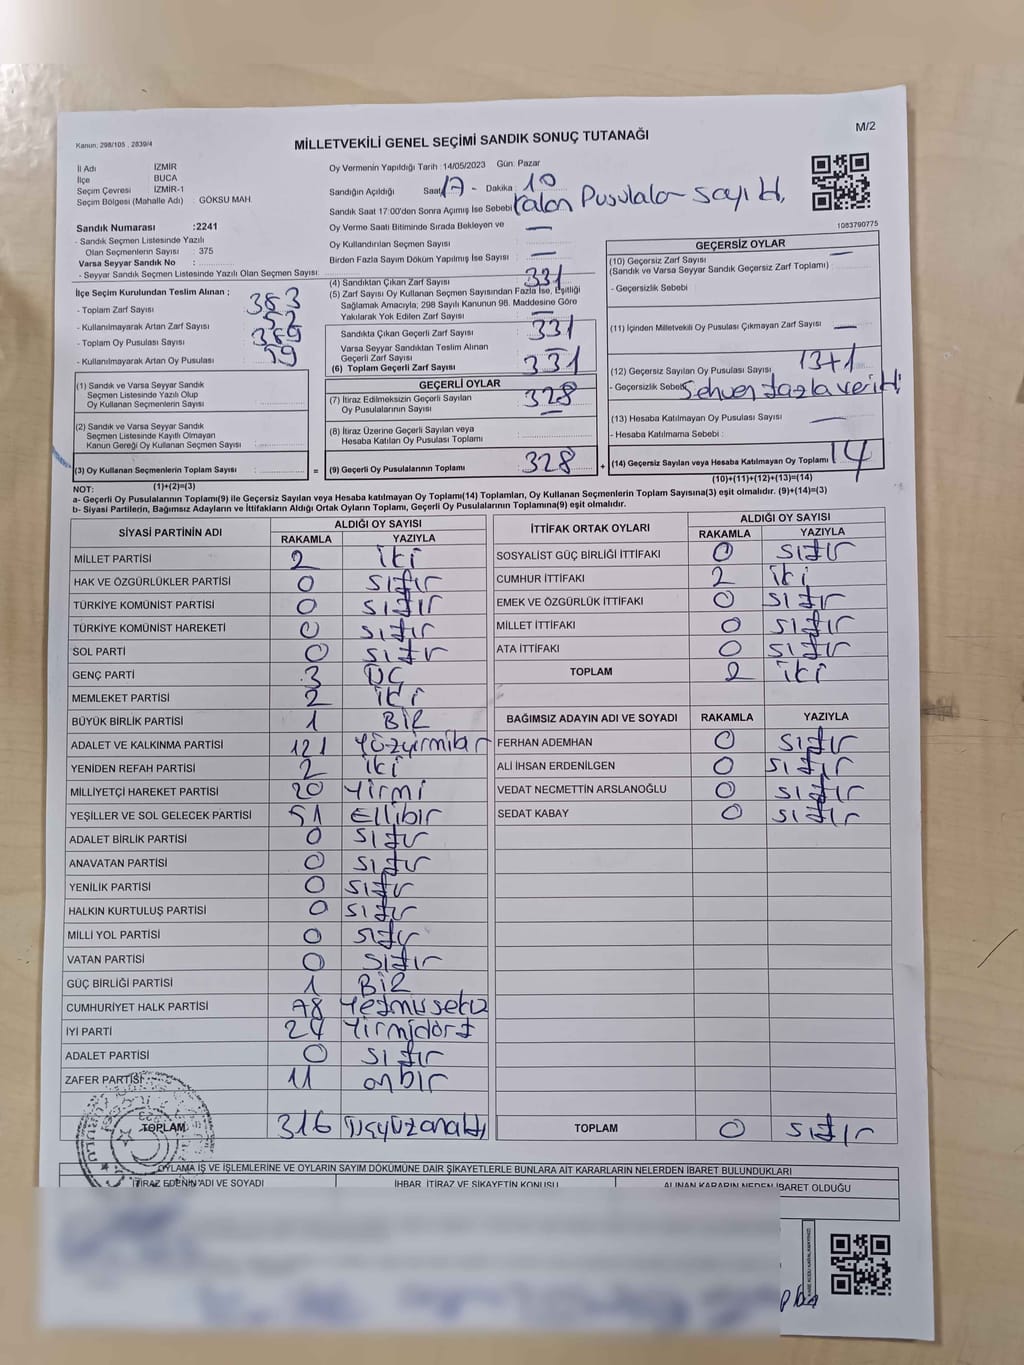 Kanun; 298/105 , 2839/4
MİLLETVEKİLİ GENEL SEÇİMİ SANDIK SONUÇ TUTANAĞI
M/2
İl Adı İZMİR
İlçe BUCA
Seçim Çevresi İZMİR-1
Seçim Bölgesi (Mahalle Adı) : GÖKSU MAH.
Sandık Numarası :2241
- Sandık Seçmen Listesinde Yazılı
Olan Seçmenlerin Sayısı : 375
Varsa Seyyar Sandık No :
- Seyyar Sandık Seçmen Listesinde Yazılı Olan Seçmen Sayısı:
Oy Vermenin Yapıldığı Tarih : 14/05/2023 Gün: Pazar
Sandığın Açıldığı Saat: 17 - Dakika : 10
Sandık Saat 17:00'den Sonra Açımış İse Sebebi kalan Pusulalar sayıldı,
Oy Verme Saati Bitiminde Sırada Bekleyen ve —
Oy Kullandırılan Seçmen Sayısı
Birden Fazla Sayım Döküm Yapılmış İse Sayısı : —
1083790775
İlçe Seçim Kurulundan Teslim Alınan ;
- Toplam Zarf Sayısı 383
- Kullanılmayarak Artan Zarf Sayısı 52
- Toplam Oy Pusulası Sayısı
- Kullanılmayarak Artan Oy Pusulası
(1) Sandık ve Varsa Seyyar Sandık
Seçmen Listesinde Yazılı Olup
Oy Kullanan Seçmenlerin Sayısı
(2) Sandık ve Varsa Seyyar Sandık
Seçmen Listesinde Kayıtlı Olmayan
Kanun Gereği Oy Kullanan Seçmen Sayısı
(3) Oy Kullanan Seçmenlerin Toplam Sayısı : =
(1)+(2)=(3)
(4) Sandıktan Çıkan Zarf Sayısı 331
(5) Zarf Sayısı Oy Kullanan Seçmen Sayısından Fazla İse, Eşitliği
Sağlamak Amacıyla; 298 Sayılı Kanunun 98. Maddesine Göre
Yakılarak Yok Edilen Zarf Sayısı : —
Sandıkta Çıkan Geçerli Zarf Sayısı 331
Varsa Seyyar Sandıktan Teslim Alınan
Geçerli Zarf Sayısı —
(6) Toplam Geçerli Zarf Sayısı 331
GEÇERLİ OYLAR
(7) İtiraz Edilmeksizin Geçerli Sayılan
Oy Pusulalarının Sayısı 328
(8) İtiraz Üzerine Geçerli Sayılan veya
Hesaba Katılan Oy Pusulası Toplamı —
(9) Geçerli Oy Pusulalarının Toplamı 328 +
GEÇERSİZ OYLAR
(10) Geçersiz Zarf Sayısı —
(Sandık ve Varsa Seyyar Sandık Geçersiz Zarf Toplamı) :
- Geçersizlik Sebebi :
(11) İçinden Milletvekili Oy Pusulası Çıkmayan Zarf Sayısı : —
(12) Geçersiz Sayılan Oy Pusulası Sayısı : 13+1
- Geçersizlik Sebebi: Sehven fazla verildi
(13) Hesaba Katılmayan Oy Pusulası Sayısı : —
- Hesaba Katılmama Sebebi :
(14) Geçersiz Sayılan veya Hesaba Katılmayan Oy Toplamı 14
(10)+(11)+(12)+(13)=(14)
NOT:
a- Geçerli Oy Pusulalarının Toplamı(9) ile Geçersiz Sayılan veya Hesaba katılmayan Oy Toplamı(14) Toplamları, Oy Kullanan Seçmenlerin Toplam Sayısına(3) eşit olmalıdır. (9)+(14)=(3)
b- Siyasi Partilerin, Bağımsız Adayların ve İttifakların Aldığı Ortak Oyların Toplamı, Geçerli Oy Pusulalarının Toplamına(9) eşit olmalıdır.
SİYASİ PARTİNİN ADI ALDIĞI OY SAYISI
RAKAMLA YAZIYLA
MİLLET PARTİSİ 2 iki
HAK VE ÖZGÜRLÜKLER PARTİSİ 0 sıfır
TÜRKİYE KOMÜNİST PARTİSİ 0 sıfır
TÜRKİYE KOMÜNİST HAREKETİ 0 sıfır
SOL PARTİ 0 sıfır
GENÇ PARTİ 3 üç
MEMLEKET PARTİSİ 2 iki
BÜYÜK BİRLİK PARTİSİ 1 BİR
ADALET VE KALKINMA PARTİSİ 121 Yüzyirmibir
YENİDEN REFAH PARTİSİ 2 iki
MİLLİYETÇİ HAREKET PARTİSİ 20 Yirmi
YEŞİLLER VE SOL GELECEK PARTİSİ 51 Ellibir
ADALET BİRLİK PARTİSİ 0 sıfır
ANAVATAN PARTİSİ 0 sıfır
YENİLİK PARTİSİ 0 sıfır
HALKIN KURTULUŞ PARTİSİ 0 sıfır
MİLLİ YOL PARTİSİ 0 sıfır
VATAN PARTİSİ 0 sıfır
GÜÇ BİRLİĞİ PARTİSİ 1 BİR
CUMHURİYET HALK PARTİSİ 78 Yetmişsekiz
İYİ PARTİ 24 Yirmidört
ADALET PARTİSİ 0 sıfır
ZAFER PARTİSİ 11 onbir
TOPLAM 316 üçyüzonaltı
İTTİFAK ORTAK OYLARI ALDIĞI OY SAYISI
RAKAMLA YAZIYLA
SOSYALİST GÜÇ BİRLİĞİ İTTİFAKI 0 sıfır
CUMHUR İTTİFAKI 2 iki
EMEK VE ÖZGÜRLÜK İTTİFAKI 0 sıfır
MİLLET İTTİFAKI 0 sıfır
ATA İTTİFAKI 0 sıfır
TOPLAM 2 iki
BAĞIMSIZ ADAYIN ADI VE SOYADI RAKAMLA YAZIYLA
FERHAN ADEMHAN 0 sıfır
ALİ İHSAN ERDENİLGEN 0 sıfır
VEDAT NECMETTİN ARSLANOĞLU 0 sıfır
SEDAT KABAY 0 sıfır
TOPLAM 0 sıfır
OYLAMA İŞ VE İŞLEMLERİNE VE OYLARIN SAYIM DÖKÜMÜNE DAİR ŞİKAYETLERLE BUNLARA AİT KARARLARIN NELERDEN İBARET BULUNDUKLARI
İTİRAZ EDENİN ADI VE SOYADI İHBAR, İTİRAZ VE ŞİKAYETİN KONUSU ALINAN KARARIN NEDEN İBARET OLDUĞU